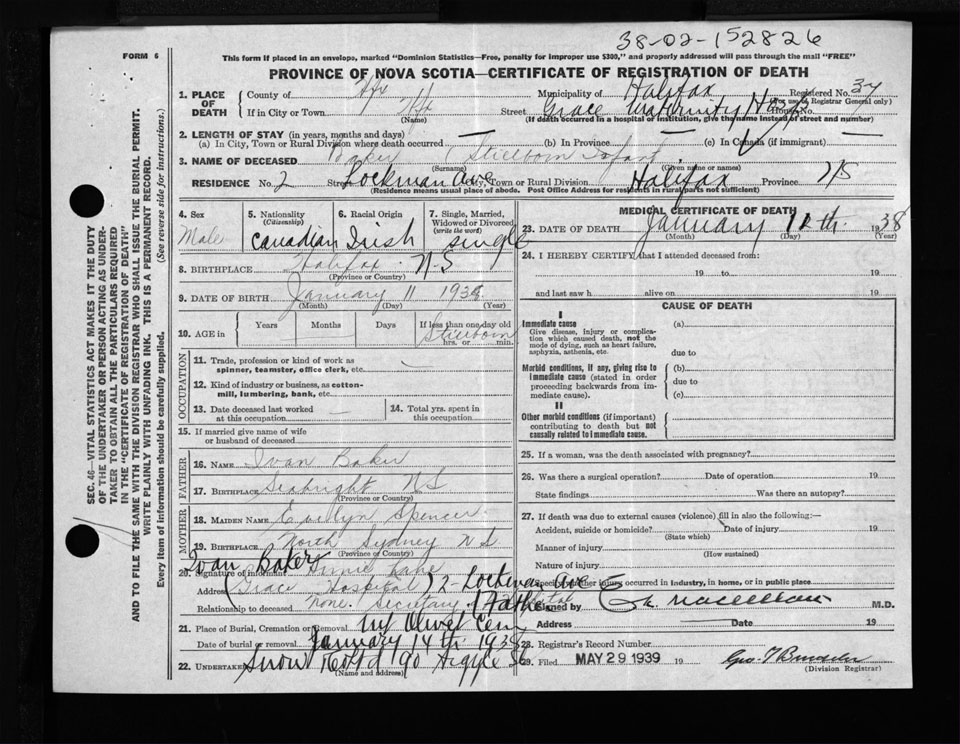 38-02-152826
FORM 6
This form if placed in an envelope, marked "Dominion Statistics—Free, penalty for improper use $300," and properly addressed will pass through the mail "FREE"
PROVINCE OF NOVA SCOTIA—CERTIFICATE OF REGISTRATION OF DEATH
1. PLACE OF DEATH
County of Hfx Municipality of Halifax Registered No. 34
(For use of Registrar General only)
If in City or Town Hfx (Name) Street Grace Maternity Hosp House No.
(If death occurred in a hospital or institution, give the name instead of street and number)
2. LENGTH OF STAY (in years, months and days)
(a) In City, Town or Rural Division where death occurred — (b) In Province — (c) In Canada (if immigrant) —
3. NAME OF DECEASED Baker (Surname) Stillborn Infant (Given name or names)
RESIDENCE No. 2 Street Lockman Ave City, Town or Rural Division Halifax Province NS
(Residence means usual place of abode. Post Office Address for residents in rural parts not sufficient)
4. Sex
Male
5. Nationality (Citizenship)
Canadian
6. Racial Origin
Irish
7. Single, Married, Widowed or Divorced (write the word)
single
8. BIRTHPLACE Halifax NS
(Province or Country)
9. DATE OF BIRTH January 11 193
(Month) (Day) (Year)
10. AGE in Years Months Days If less than one day old
Stillborn
hrs. or min.
OCCUPATION
11. Trade, profession or kind of work as spinner, teamster, office clerk, etc.
12. Kind of industry or business, as cotton-mill, lumbering, bank, etc.
13. Date deceased last worked at this occupation
14. Total yrs. spent in this occupation
15. If married give name of wife or husband of deceased
FATHER
16. NAME Ivan Baker
17. BIRTHPLACE Seabright NS
(Province or Country)
MOTHER
18. MAIDEN NAME Evelyn Spencer
19. BIRTHPLACE North Sydney N.S.
(Province or Country)
Ivan Baker
20. Signature of informant
Address Grace Hospital 2 Lockman Ave
Relationship to deceased none. Secretary Hospital Father
21. Place of Burial, Cremation or Removal Mt Olivet Cem
Date of burial or removal January 14th 1938
22. UNDERTAKER Snow Co Ltd 90 Argyle St
(Name and address)
MEDICAL CERTIFICATE OF DEATH
23. DATE OF DEATH January 12th 1938
(Month) (Day) (Year)
24. I HEREBY CERTIFY that I attended deceased from:
19 to 19
and last saw h alive on 19
CAUSE OF DEATH
I
Immediate cause (a)
Give disease, injury or complication which caused death, not the mode of dying, such as heart failure, asphyxia, asthenia, etc.
due to
Morbid conditions, if any, giving rise to immediate cause (stated in order proceeding backwards from immediate cause).
(b)
due to
(c)
II
Other morbid conditions (if important) contributing to death but not causally related to immediate cause.
25. If a woman, was the death associated with pregnancy?
26. Was there a surgical operation? Date of operation 19
State findings Was there an autopsy?
27. If death was due to external causes (violence) fill in also the following:—
Accident, suicide or homicide? Date of injury 19
(State which)
Manner of injury
(How sustained)
Nature of injury
Specify whether injury occurred in industry, in home, or in public place
Signed by M.D.
Address Date 19
28. Registrar's Record Number
29. Filed MAY 29 1939 19
(Division Registrar)
SEC. 46—VITAL STATISTICS ACT MAKES IT THE DUTY
OF THE UNDERTAKER OR PERSON ACTING AS UNDER-
TAKER TO OBTAIN ALL THE PARTICULARS REQUIRED
IN THE "CERTIFICATE OF REGISTRATION OF DEATH"
AND TO FILE THE SAME WITH THE DIVISION REGISTRAR WHO SHALL ISSUE THE BURIAL PERMIT.
WRITE PLAINLY WITH UNFADING INK. THIS IS A PERMANENT RECORD.
Every item of information should be carefully supplied. (See reverse side for instructions.)